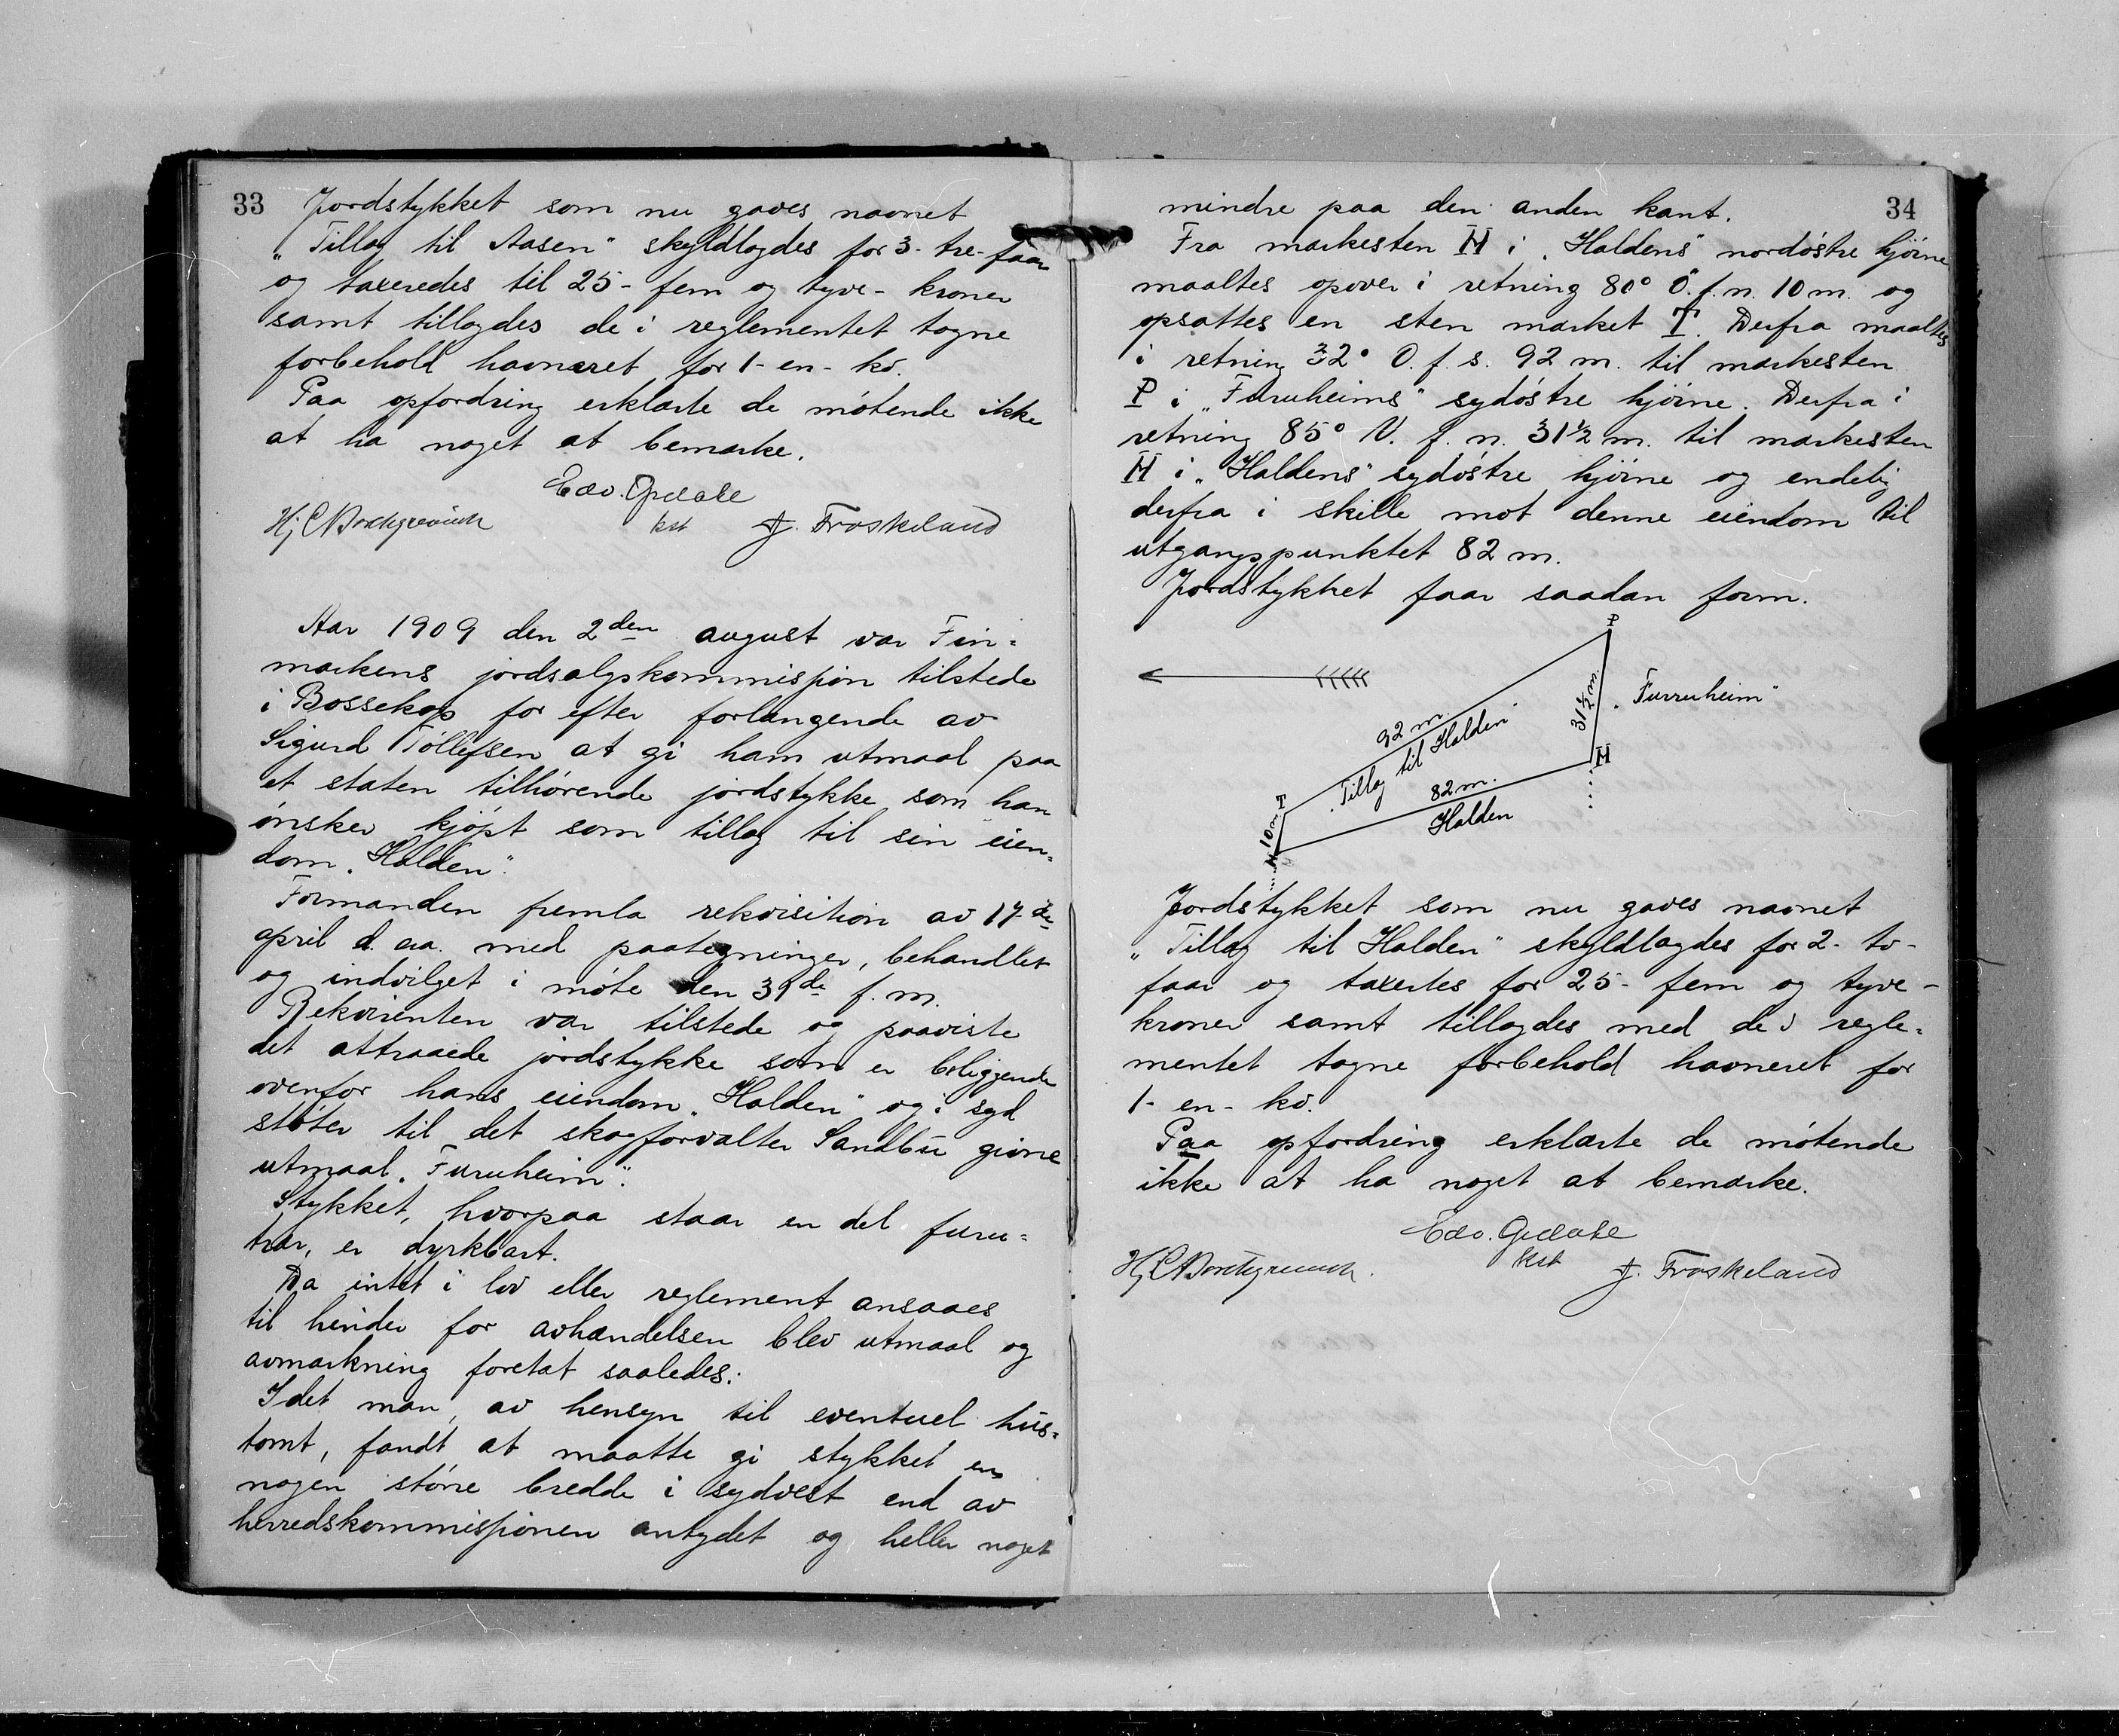 33
Jordstykket som nu gaves navnet
„Tillæg til Aasen" skyldlagdes for 3- tre- faar
og taxeredes til 25- fem og tyve- kroner
samt tillagdes de i reglementet tagne
forbehold havneret for 1- en- ko.
Paa opfordring erklærte de mötende ikke
at ha noget at bemærke.
Edv.
kst
J. Froskeland
Aar 1909 den 2den august var Fin=
markens jordsalgskommission tilstede
i Bossekop for efter forlangende av
Sigurd Töllefsen at gi ham utmaal paa
et staten tilhörende jordstykke som han
önsker kjöpt som tillæg til sin eien=
dom „Halden".
Formanden fremla rekvisition av 17de
april d. aa. med paategninger, behandlet
og indvilget i möte den 31de f. m.
Rekvirenten var tilstede og paaviste
det attraaede jordstykke som er beliggende
ovenfor hans eiendom „Halden" og i syd
stöter til det skogforvalter Sandbu givne
utmaal „Furuheim".
Stykket, hvorpaa staar en del furu=
trær, er dyrkbart.
Da intet i lov eller reglement ansaaes
til hinder for avhændelsen blev utmaal og
avmærkning foretat saaledes:
Idet man, av hensyn til eventuel hus=
tomt, fandt at maatte gi stykket en
nogen större bredde i sydvest end av
herredskommissionen antydet og heller noget
34
mindre paa den anden kant.
Fra merkesten H i „Haldens" nordöstre hjörne
maaltes opover i retning 80° Ö. f. n. 10 m. og
opsattes en sten merket T. Derfra maaltes
i retning 32° O. f. s. 92 m. til merkesten
P i „Furuheims" sydöstre hjörne. Derfra i
retning 85° V. f. n. 31½ m. til merkesten
H i „Haldens" sydöstre hjörne og endelig
derfra i skille mot denne eiendom til
utgangspunktet 82 m.
Jordstykket faar saadan form.
P
31½ m.
„Furruheim"
92 m.
„Tillæg til Halden"
H
82 m.
Halden
T
10 m.
H
Jordstykket som nu gaves navnet
„Tillæg til Halden" skyldlagdes for 2- to-
faar og taxertes for 25- fem og tyve-
kroner samt tillagdes med de i regle=
mentet tagne forbehold havneret for
1- en- ko.
Paa opfordring erklærte de mötende
ikke at ha noget at bemærke.
Edv.
kst
J. Froskeland